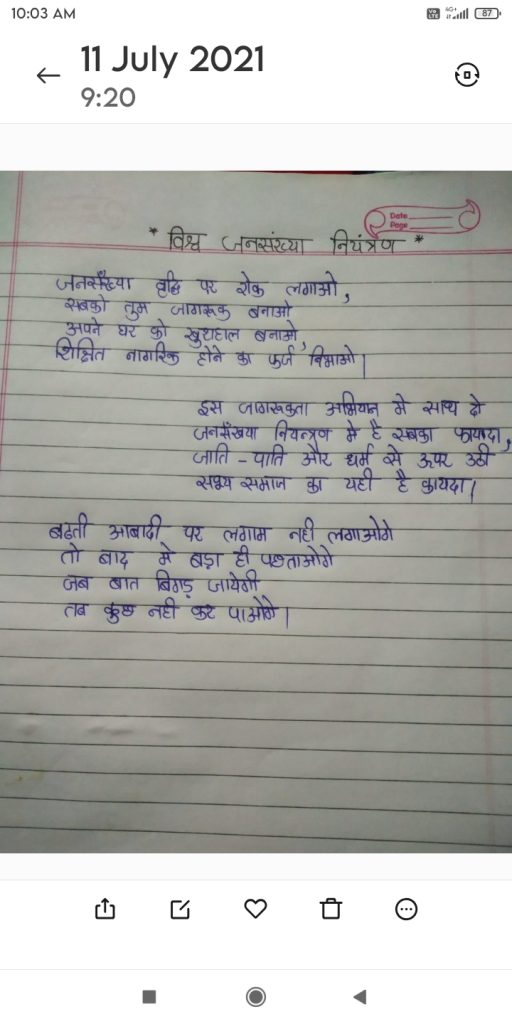 10:03 AM
Vo LTE 4G+ 87
11 July 2021
9:20
Date
Page
* विश्व जनसंख्या नियंत्रण *
जनसँख्या वृद्धि पर रोक लगाओ,
सबको तुम जागरूक बनाओ
अपने घर को खुशहाल बनाओ,
शिक्षित नागरिक होने का फर्ज निभाओ।
इस जागरूकता अभियान मे साथ दो
जनसँखया नियन्त्रण मे है सबका फायदा,
जाति - पाति और धर्म से ऊपर उठो
सभ्य समाज का यही है कायदा।
बढती आबादी पर लगाम नही लगाओगे
तो बाद मे बड़ा ही पछताओगे
जब बात बिगड़ जायेगी
तब कुछ नही कर पाओगे।